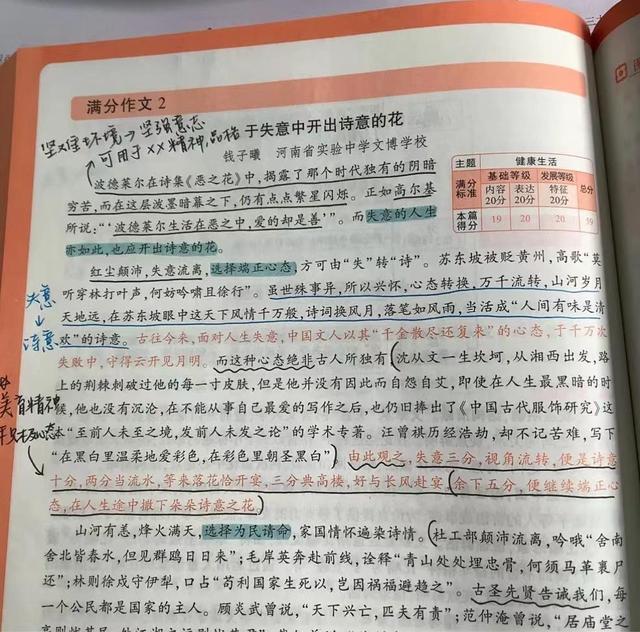 满分作文2
于失意中开出诗意的花
坚对宝环境→坚强意志
可用于××精神,品格
钱子曦 河南省实验中学文博学校
主题 健康生活
满分标准 基础等级 发展等级 总分
内容20分 表达20分 特征20分
本篇得分 19 20 20 59
波德莱尔在诗集《恶之花》中,揭露了那个时代独有的阴暗
穷苦,而在这层泼墨暗幕之下,仍有点点繁星闪烁。正如高尔基
所说:“‘波德莱尔生活在恶之中,爱的却是善’”。而失意的人生
亦如此,也应开出诗意的花。
红尘颠沛,失意流离,选择端正心态,方可由“失”转“诗”。苏东坡被贬黄州,高歌“莫
听穿林打叶声,何妨吟啸且徐行”。虽世殊事异,所以兴怀,心态转换,万千流转,山河岁月
天地远,在苏东坡眼中这天下风情千万般,诗词换风月,落笔如风雨,当活成“人间有味是清
欢”的诗意。古往今来,面对人生失意,中国文人以其“千金散尽还复来”的心态,于千万次
失败中,守得云开见月明。而这种心态绝非古人所独有(沈从文一生坎坷,从湘西出发,路
上的荆棘刺破过他的每一寸皮肤,但是他并没有因此而自怨自艾,即使在人生最黑暗的时
候,他也没有沉沦,在不能从事自己最爱的写作之后,也仍旧捧出了《中国古代服饰研究》这
本“至前人未至之境,发前人未发之论”的学术专著。汪曾祺历经浩劫,却不记苦难,写下
“在黑白里温柔地爱彩色,在彩色里朝圣黑白”)由此观之,失意三分,视角流转,便是诗意
十分,两分当流水,等来落花恰开宴,三分典高楼,好与长风赴宴(余下五分,便继续端正心
态,在人生途中撒下朵朵诗意之花)
失意
↓
诗意
美育精神
山河有恙,烽火满天,选择为民请命,家国情怀遍染诗情。(杜工部颠沛流离,吟哦“舍南
舍北皆春水,但见群鸥日日来”;毛岸英奔赴前线,诠释“青山处处埋忠骨,何须马革裹尸
还”;林则徐戍守伊犁,口占“苟利国家生死以,岂因祸福避趋之”。古圣先贤告诫我们,每
一个公民都是国家的主人。顾炎武曾说,“天下兴亡,匹夫有责”;范仲淹曾说,“居庙堂之